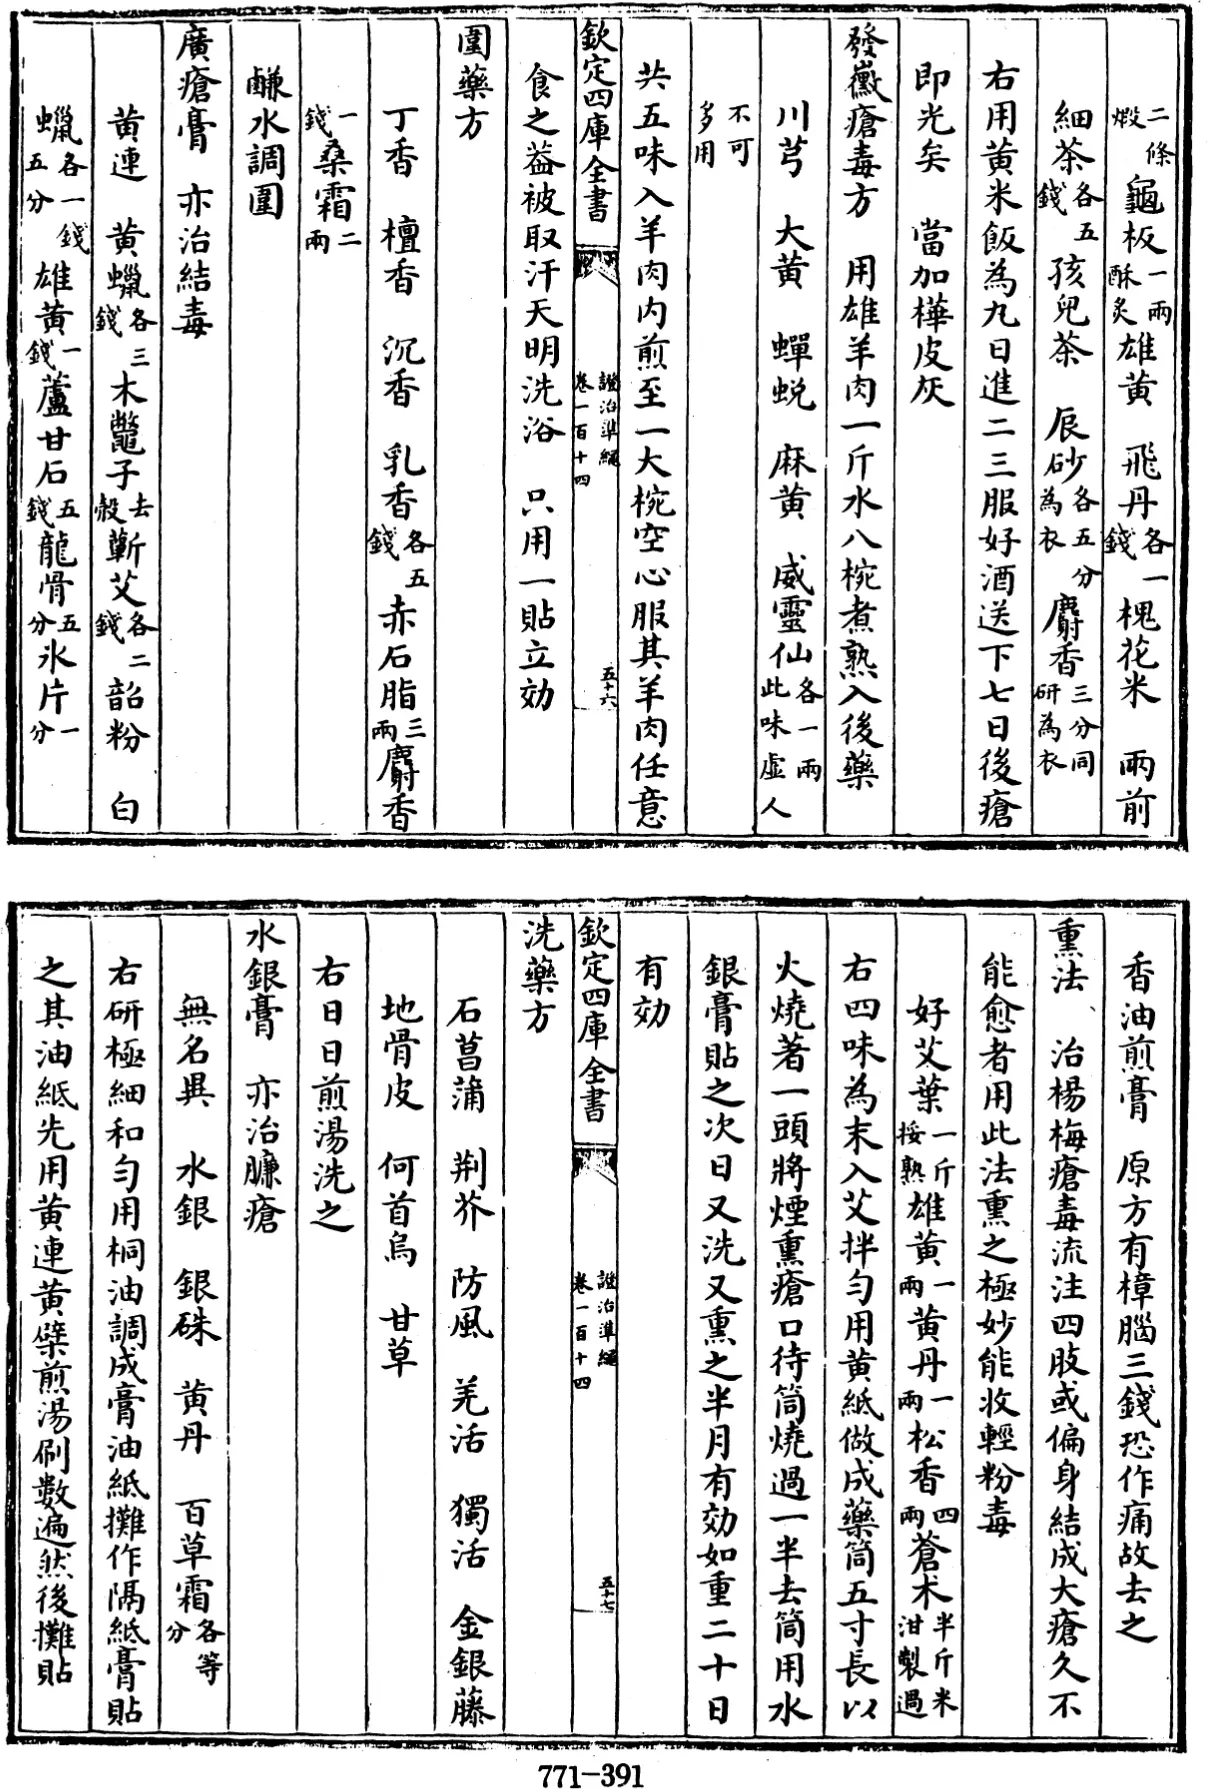 二條煆龜板一兩酥炙雄黄　飛丹各一錢槐花米　兩前
細茶各五錢孩兒茶　辰砂各五分為衣麝香三分同研為衣
右用黄米飯為九日進二三服好酒送下七日後瘡
即光矣　當加樺皮灰
發黴瘡毒方　用雄羊肉一斤水八椀煮熟入後藥
川芎　大黄　蟬蛻　麻黄　威靈仙各一兩此味虚人
不可多用
共五味入羊肉内煎至一大椀空心服其羊肉任意
欽定四庫全書　證治凖繩卷一百十四　五十六
食之葢被取汗天明洗浴　只用一貼立効
圍藥方
丁香　檀香　沉香　乳香各五錢赤石脂三兩麝香
一錢桑霜二兩
鹻水調圍
廣瘡膏　亦治結毒
黄連　黄蠟各三錢木鼈子去殻蘄艾各二錢韶粉　白
蠟各一錢五分雄黄一錢蘆甘石五錢龍骨五分氷片一分
香油煎膏　原方有樟腦三錢恐作痛故去之
熏法　治楊梅瘡毒流注四肢或偏身結成大瘡久不
能愈者用此法熏之極妙能收輕粉毒
好艾葉一斤挼熟雄黄一兩黄丹一兩松香四兩蒼术半斤米泔製過
右四味為末入艾拌勻用黄紙做成藥筒五寸長以
火燒著一頭將煙熏瘡口待筒燒過一半去筒用水
銀膏貼之次日又洗又熏之半月有効如重二十日
有効
欽定四庫全書　證治凖繩卷一百十四　五十七
洗藥方
石菖蒲　荆芥　防風　羌活　獨活　金銀藤
地骨皮　何首烏　甘草
右日日煎湯洗之
水銀膏　亦治臁瘡
無名異　水銀　銀硃　黄丹　百草霜各等分
右研極細和勻用桐油調成膏油紙攤作隔紙膏貼
之其油紙先用黄連黄檗煎湯刷數遍然後攤貼
771-391